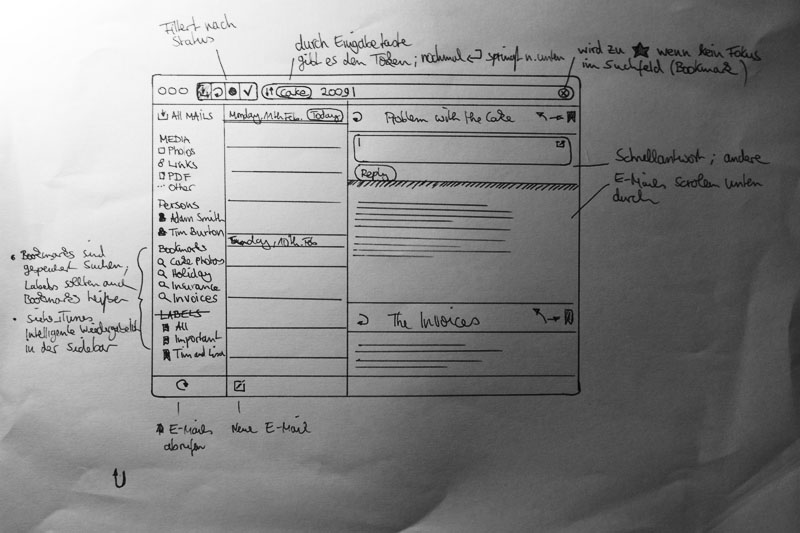 Filtert nach
Status
durch Eingabetaste
gibt es den Token; nochmal springt n. unten
wird zu ★ wenn kein Fokus
im Suchfeld (Bookmark)
Cake 2009|
All MAILS
MEDIA
Photos
Links
PDF
Other
Persons
Adam Smith
Tim Burton
Bookmarks
Cake Photos
Holiday
Insurance
Invoices
LABELS
All
Important
Tim and Lisa
Monday, 11th Feb. Today
Sunday, 10th Feb
Problem with the Cake
Reply
The Invoices
Schnellantwort; andere
E-Mails scrollen unten
durch
• Bookmarks sind
gespeichert Suchen;
Labels sollten auch
Bookmarks heißen
• siehe iTunes
Intelligente Wiedergabeliste
in der Sidebar
E-Mails
abrufen
Neue E-Mail